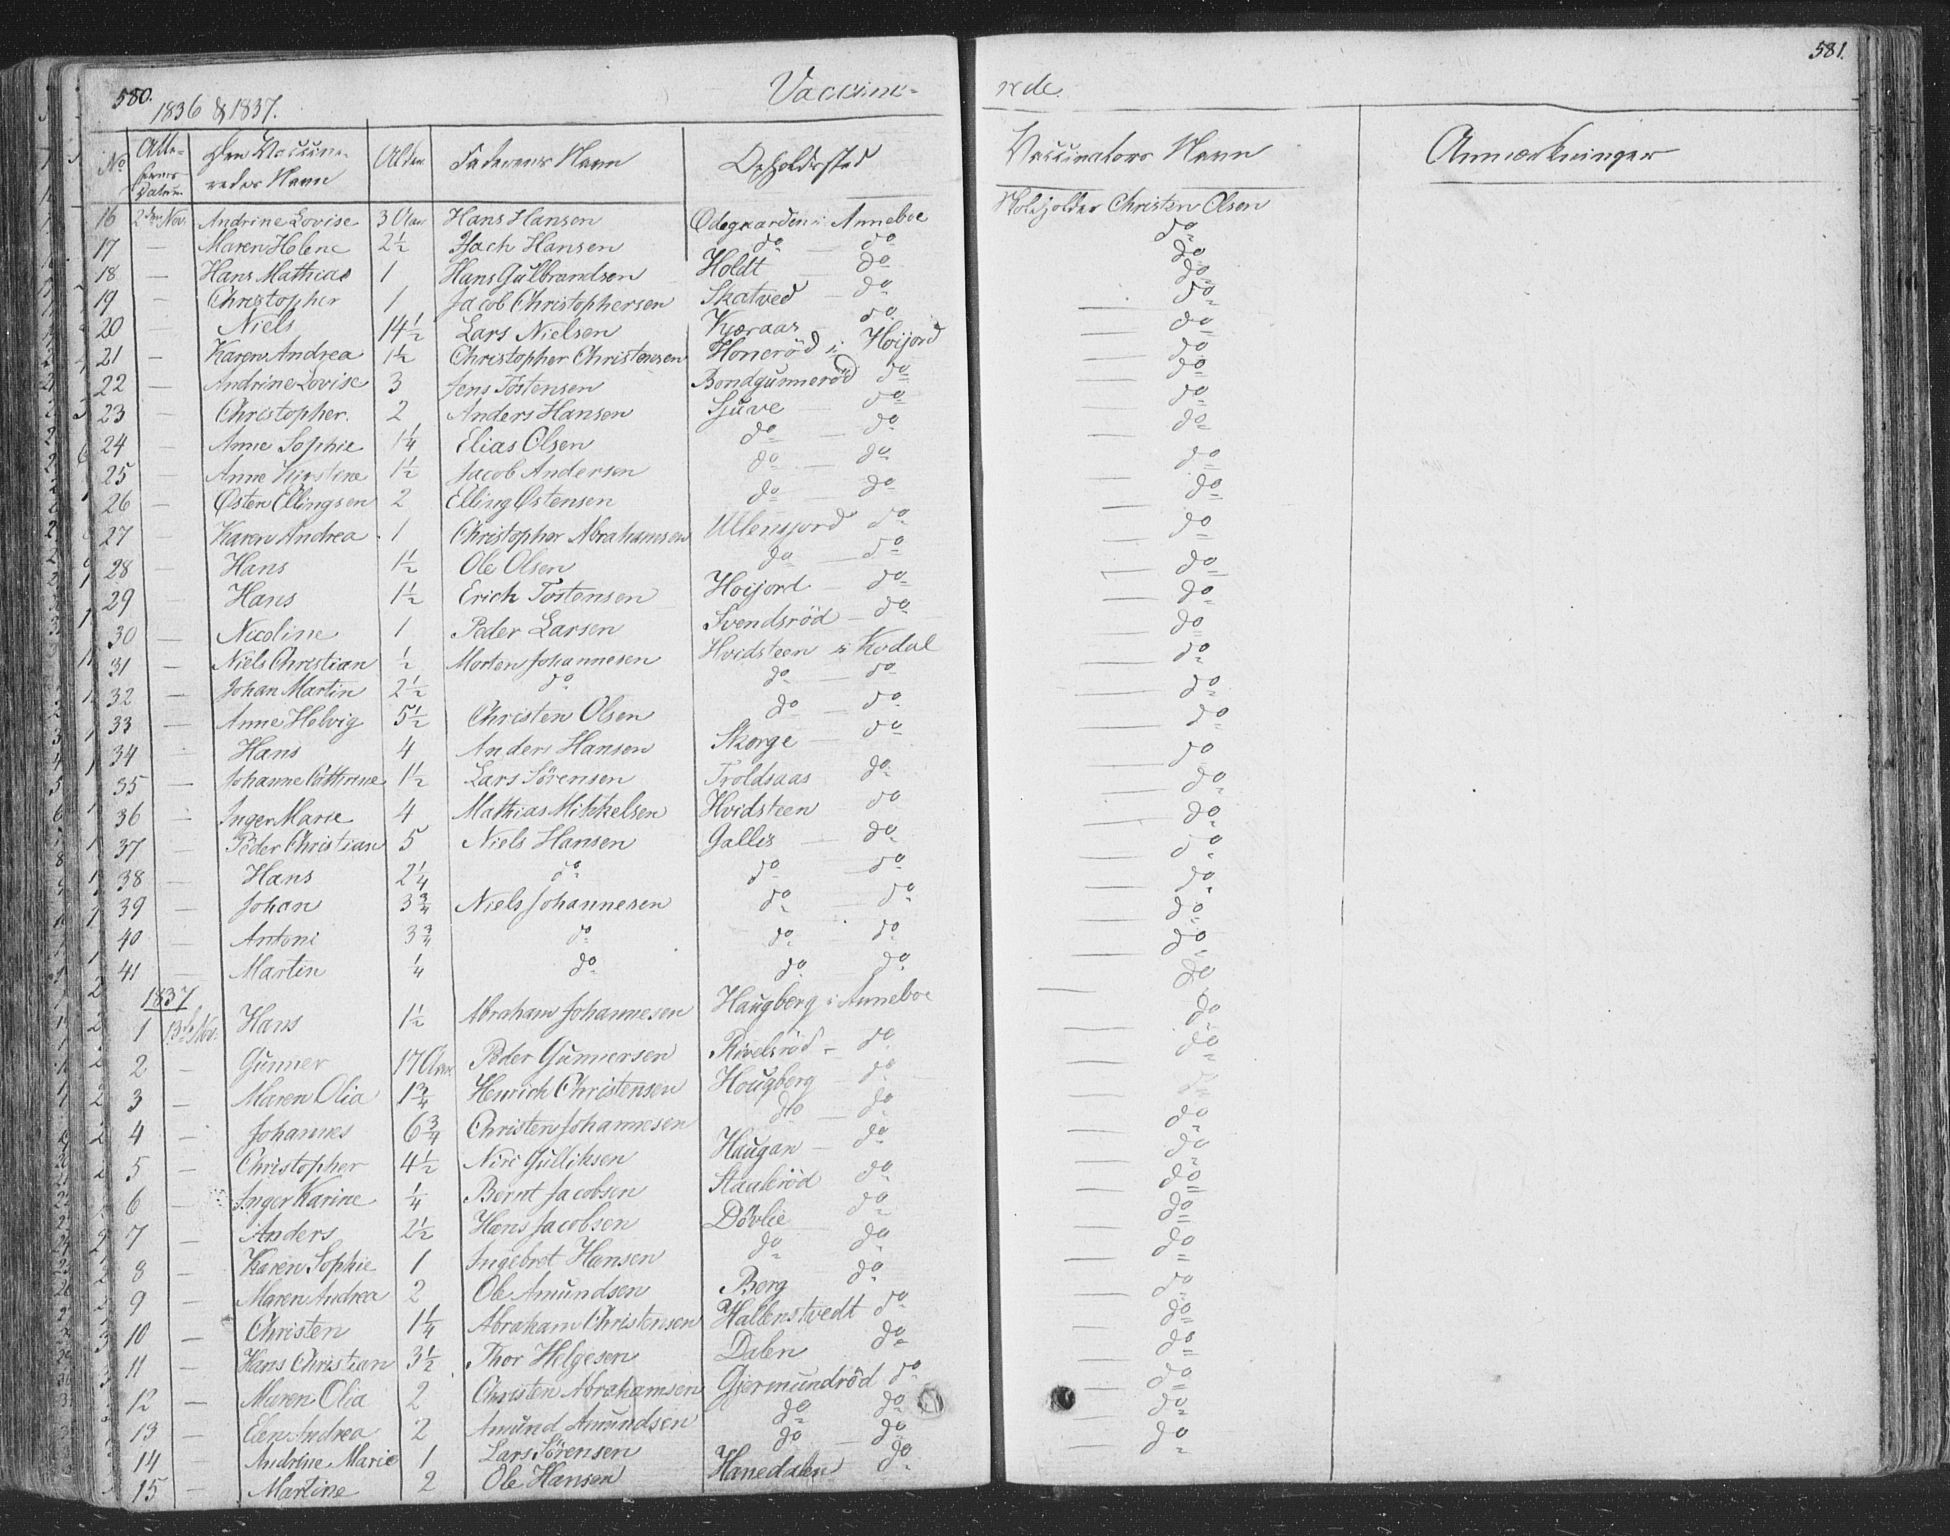 580. 1836 & 1837. Vaccine-
rede. 581.
No Atte- sternes Datum Den Vaccine- redes Navn Alder Faderens Navn Opholdssted Vaccinators Navn Anmærkninger
16 2den Nov. Andrine Lovise 3 Aar Hans Hansen Ødegaarden i Anneboe Christen Olsen
17 — Maren Helene 2½ Hansen do do do
18 — Hans Mathias 1 Hans Gulbrandsen Holdt do do
19 — Christopher 1 Jacob Christophersen Skatved — do do
20 Niels 14½ Lars Nielsen Kjæraas — do do
21 — Karen Andrea 1½ Christopher Christensen Honerød i Høijord do
22 — Andrine Lovise 3 Jens Tostensen Bondgunnerød do do
23 — Christopher. 2 Anders Hansen Sjuve — do do
24 — Anne Sophie 1¼ Elias Olsen do — do do
25 — Anne Kirstine 1½ Jacob Andersen do — do do
26 — Østen Ellingsen 2 Elling Østensen do — do do
27 — Karen Andrea 1 Christopher Abrahamsen do do
28 — Hans 1½ Ole Olsen do — do do
29 — Hans 1½ Erich Tostensen Hoijord — do do
30 — Nicoline 1 Peder Larsen Svendsrød — do do
31 — Niels Christian ½ Morten Johannesen Hvidsteen i Kodal do
32 — Johan Martin 2½ do do — do do
33 — Anne Helvig 5½ Christen Olsen do — do do
34 — Hans 4 Anders Hansen Skorge — do do
35 — Johanne Cathrine 1½ Lars Sørensen Troldsaas do do
36 — Inger Marie 4 Mathias Mikkelsen Hvidsteen do do
37 — Peder Christian 5 Niels Hansen Gallis — do do
38 — Hans 2¼ do do — do do
39 — Johan 3¾ Niels Johannesen do — do do
40 — Antoni 3¾ do do — do do
41 — Martin ¼ do do do do
1837
1 13de Nov. Hans 1½ Abraham Johannesen Haugberg i Anneboe do
2 — Gunner 17 Aar Peder Gunnersen Rivelsrød — do do
3 — Maren Olia 1¾ Henrich Christensen Hougberg — do do
4 — Johannes 6¾ Christen Johannesen do — do do
5 — Christopher 4½ Gulliksen Haugan — do do
6 — Inger Karine ¼ Bernt Jacobsen Staalerød do do
7 — Anders 2½ Hans Jacobsen Døvlie do do
8 — Karen Sophie 1 Ingebret Hansen do do do
9 — Maren Andrea 2 Ole Amundsen Berg — do do
10 — Christen 1¼ Abraham Christensen Hallenstvedt do do
11 — Hans Christian 3½ Thor Helgesen Dalen do do
12 — Maren Olia 2 Christen Abrahamsen Gjermundrød do do
13 — Elen Andrea 2 Amund Amundsen do do do
14 — Andrine Marie 1 Lars Sørensen do — do do
15 — Martine 2 Ole Hansen Hanedalen do